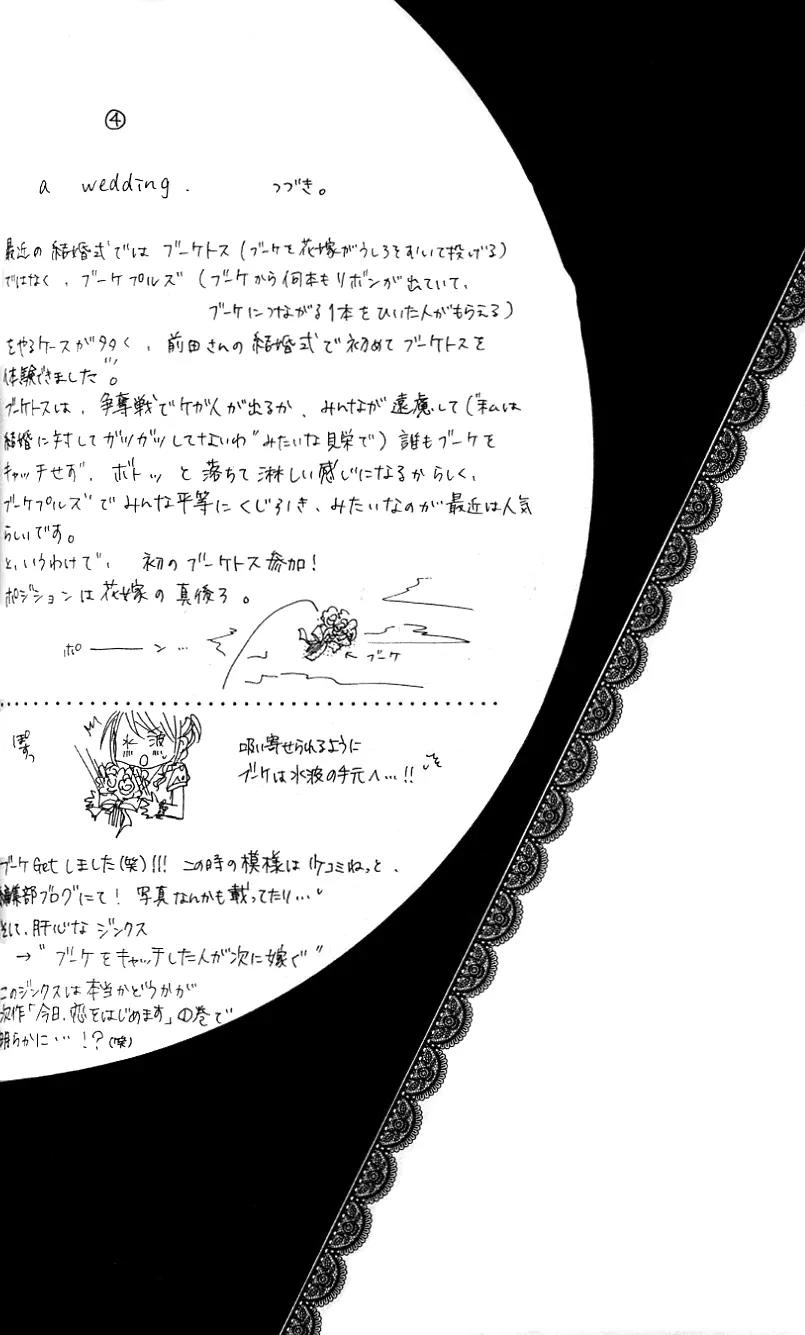 ④
a wedding. つづき。
最近の結婚式では ブーケトス (ブーケを花嫁がうしろをむいて投げる)
ではなく、ブーケプルズ (ブーケから何本もリボンが出ていて、
ブーケにつながる1本をひいた人がもらえる)
をやるケースが多く、前田さんの結婚式で初めてブーケトスを
体験できました。
ブーケトスは、争奪戦でケガ人が出るか、みんなが遠慮して("私は
結婚に対してガツガツしてないわ"みたいな見栄で) 誰もブーケを
キャッチせず、ボトッと落ちて淋しい感じになるからしく、
ブーケプルズでみんな平等にくじ引き、みたいなのが最近は人気
らしいです。
というわけで、初のブーケトス参加!
ポジションは花嫁の真後ろ。
ポ――ン…
←ブーケ
ぽすっ
水波
吸い寄せられるように
ブーケは水波の手元へ…!!
ブーケGetしました(笑)!!! この時の模様はケコミねっと、
編集部ブログにて! 写真なんかも載ってたり…
そして、肝心なジンクス
→"ブーケをキャッチした人が次に嫁ぐ"
このジンクスは本当かどうかが
次作「今日、恋をはじめます」①巻で
明らかに…!?(笑)